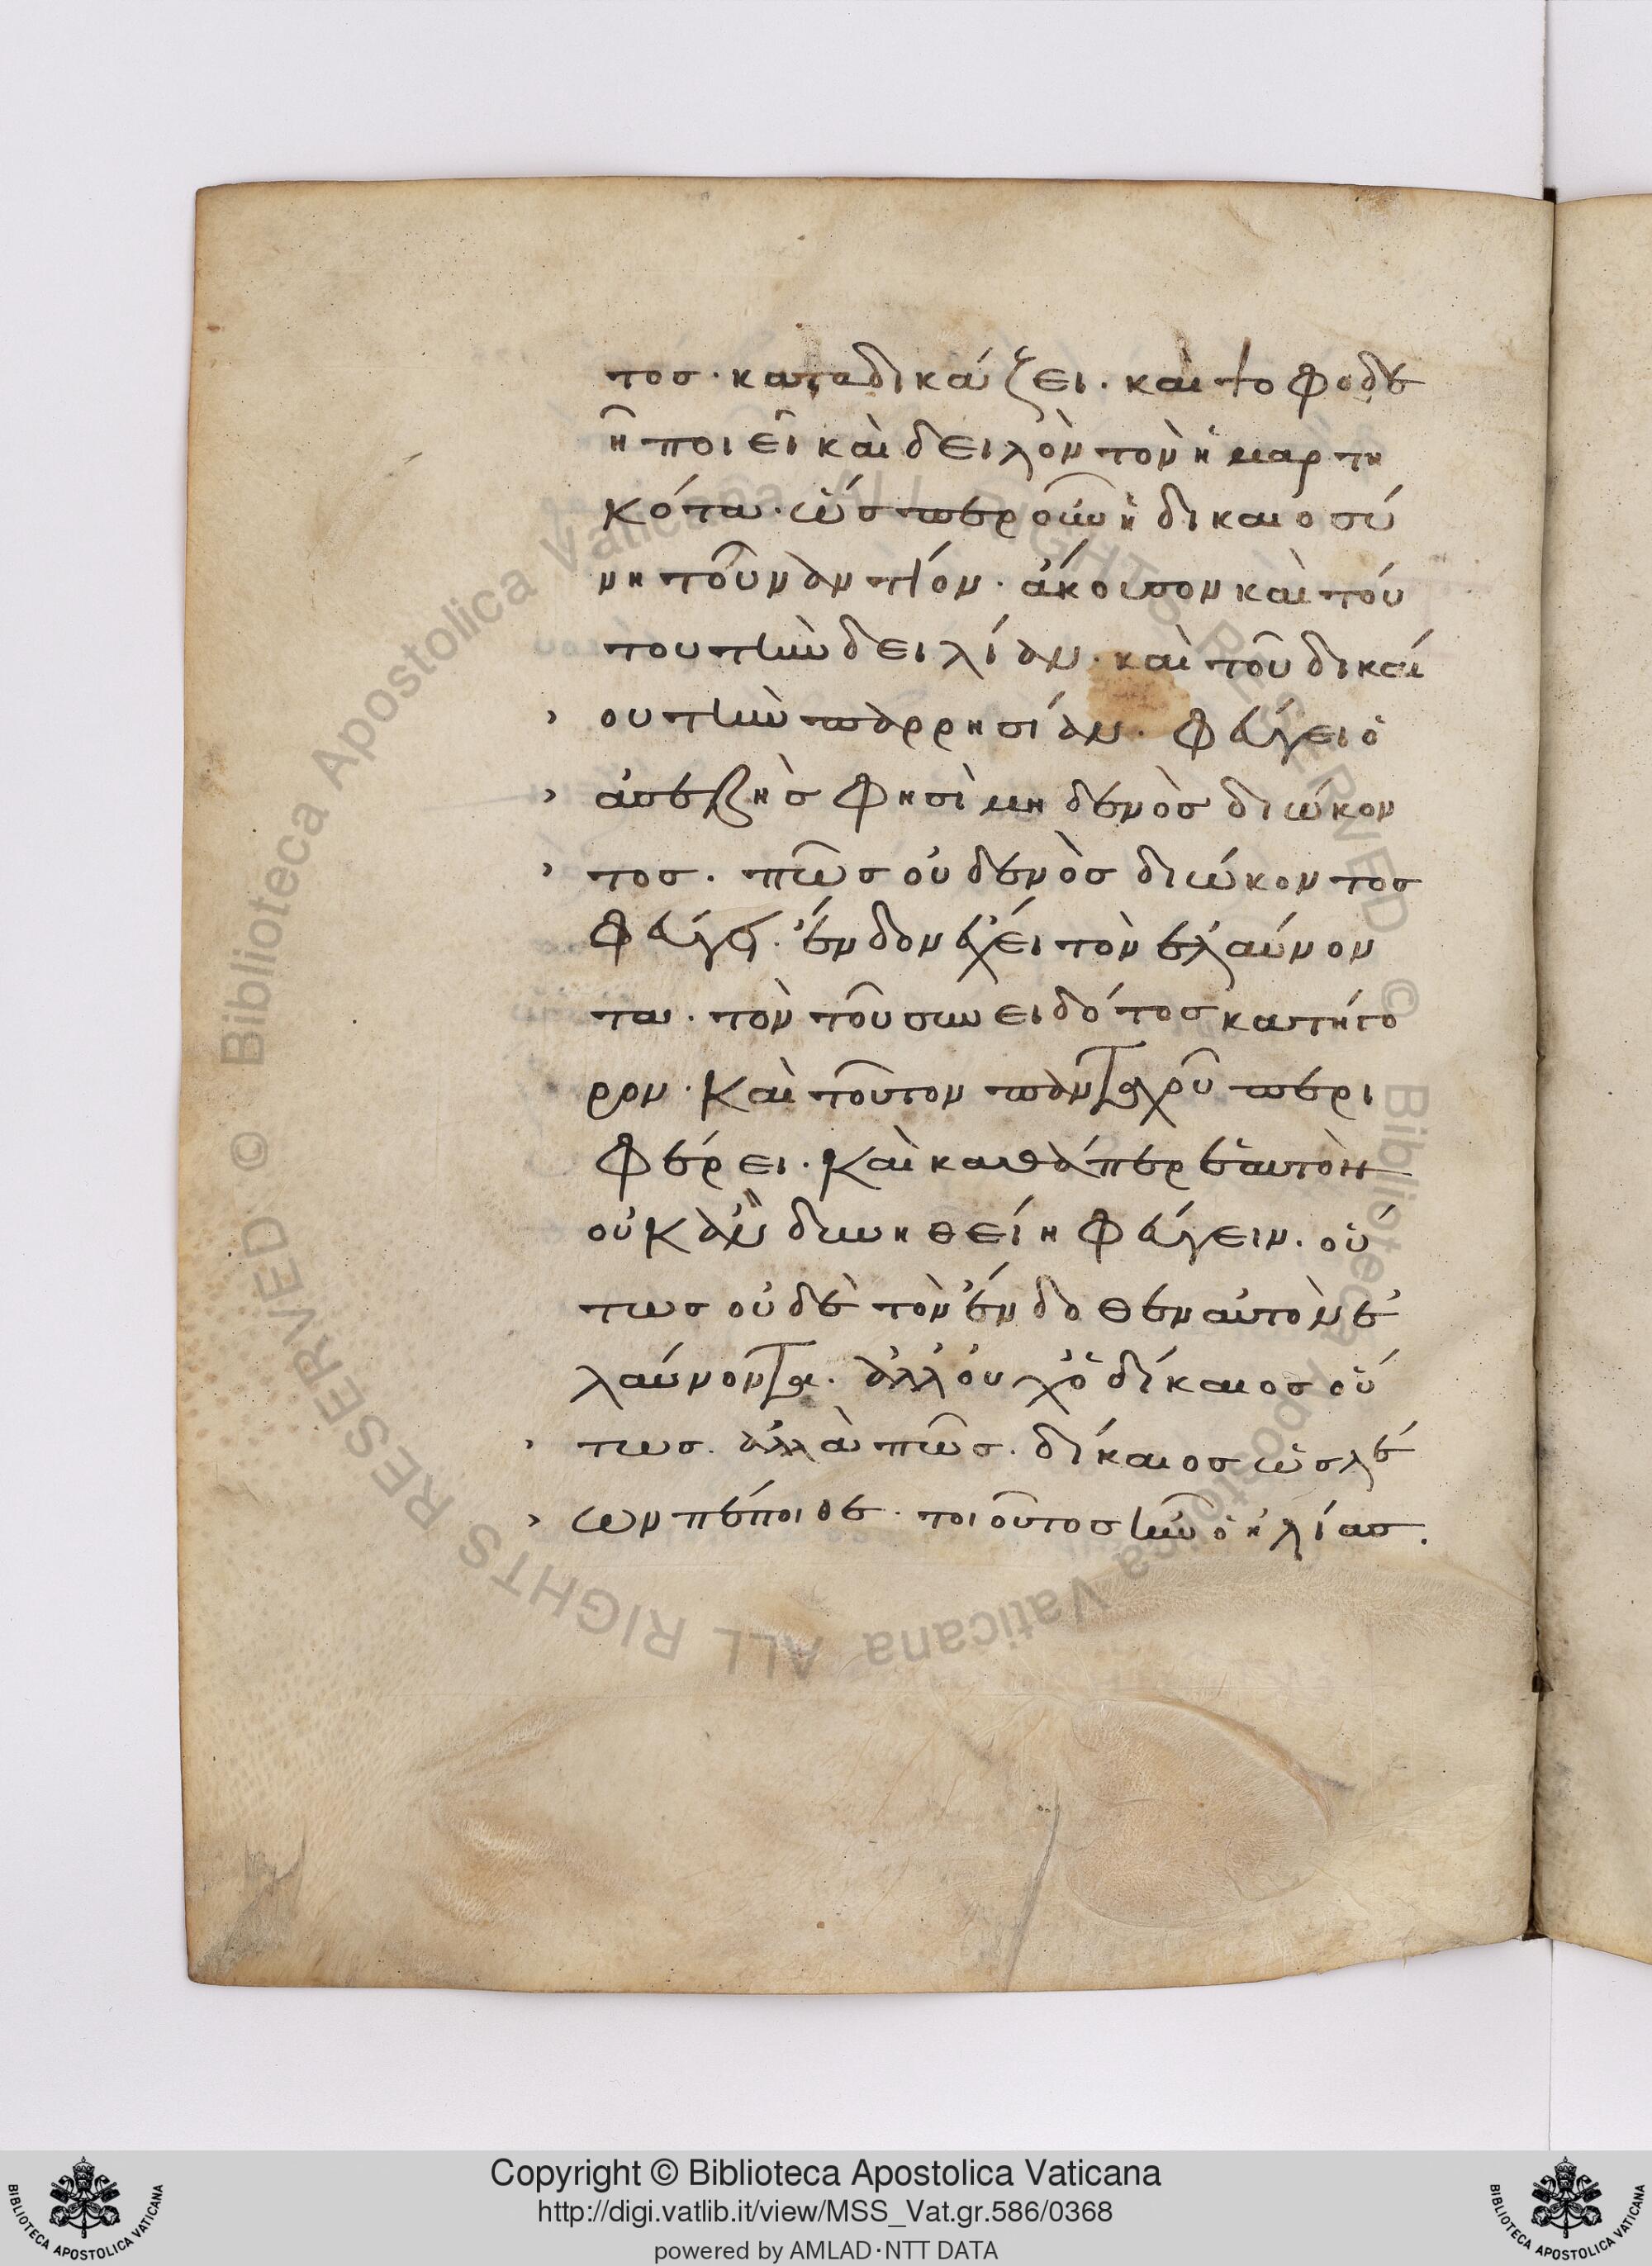 τος· καταδικάζει· καὶ φοβε
ῆ ποιεῖ καὶ δειλὸν τὸν ἡμαρτη
κότα· ὥσπερ οὖν ἡ δικαιοσύ
νη τοὐναντίον· ἄκουσον καὶ τού
του τὴν δειλίαν· καὶ τοῦ δικαί
› ου τὴν παρρησίαν· φεύγει ὁ
› ἀσεβὴς φησὶ μηδενὸς διώκον
› τος· πῶς οὐδενὸς διώκοντος
φεύγει· ἔνδον ἔχει τὸν ἐλαύνον
τα· τὸν τοῦ συνειδότος κατήγο
ρον· καὶ τοῦτον πανταχοῦ περι
φέρει· καὶ καθάπερ ἑαυτὸν
οὐκ ἂν δυνηθείη φεύγειν· οὕ
τως οὐδὲ τὸν ἔνδοθεν αὐτὸν ἐ
λαύνοντα· ἀλλ' οὐχ ὁ δίκαιος οὕ
› τως· ἀλλὰ πῶς· δίκαιος ὡς λέ
› ων πέποιθε· τοιοῦτος ἦν ὁ ἠλίας.
Copyright © Biblioteca Apostolica Vaticana
http://digi.vatlib.it/view/MSS_Vat.gr.586/0368
powered by AMLAD·NTT DATA
BIBLIOTECA APOSTOLICA VATICANA
BIBLIOTECA APOSTOLICA VATICANA
Biblioteca Apostolica Vaticana ALL RIGHTS RESERVED ©
Biblioteca Apostolica Vaticana ALL RIGHTS RESERVED ©